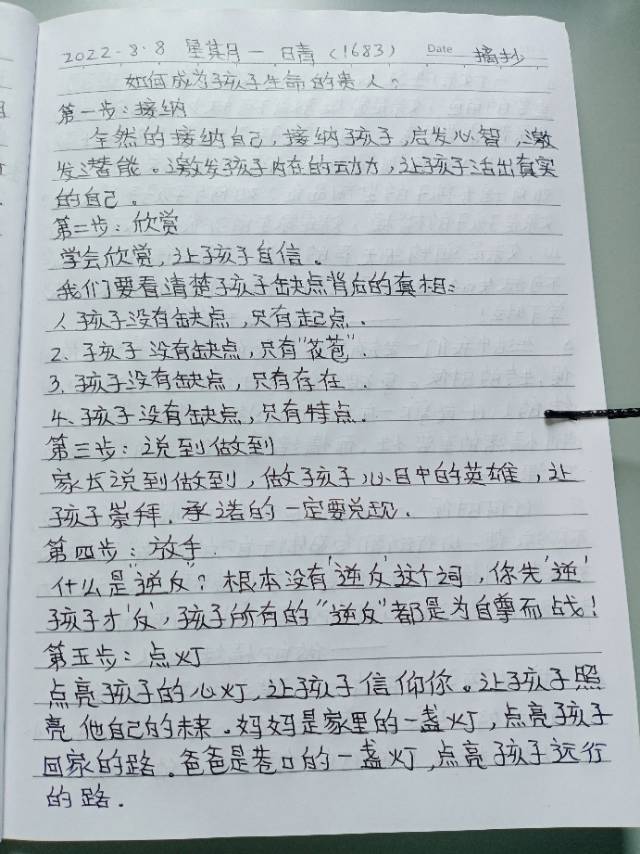 2022.8.8 星期一 晴(1683) Date 摘抄
如何成为孩子生命的贵人?
第一步:接纳
全然的接纳自己,接纳孩子,启发心智,激
发潜能。激发孩子内在的动力,让孩子活出真实
的自己。
第二步:欣赏
学会欣赏,让孩子自信。
我们要看清楚孩子缺点背后的真相:
1、孩子没有缺点,只有起点.
2、孩子没有缺点,只有"花苞".
3、孩子没有缺点,只有存在.
4、孩子没有缺点,只有特点.
第三步:说到做到
家长说到做到,做孩子心目中的英雄,让
孩子崇拜.承诺的一定要兑现.
第四步:放手.
什么是"逆反"?根本没有'逆反'这个词,你先'逆'
孩子才'反',孩子所有的"逆反"都是为自尊而战!
第五步:点灯
点亮孩子的心灯,让孩子信仰你。让孩子照
亮他自己的未来.妈妈是家里的一盏灯,点亮孩子
回家的路.爸爸是巷口的一盏灯,点亮孩子远行
的路.